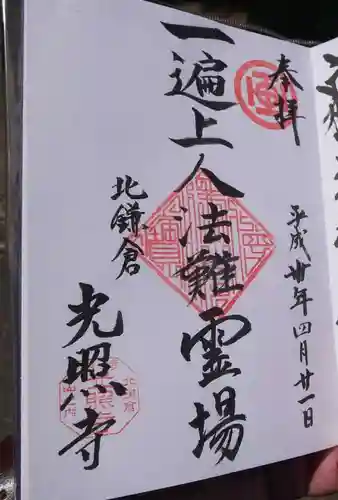 奉拝
平成卅年四月廿一日
一遍上人法難霊場
北鎌倉
光照寺